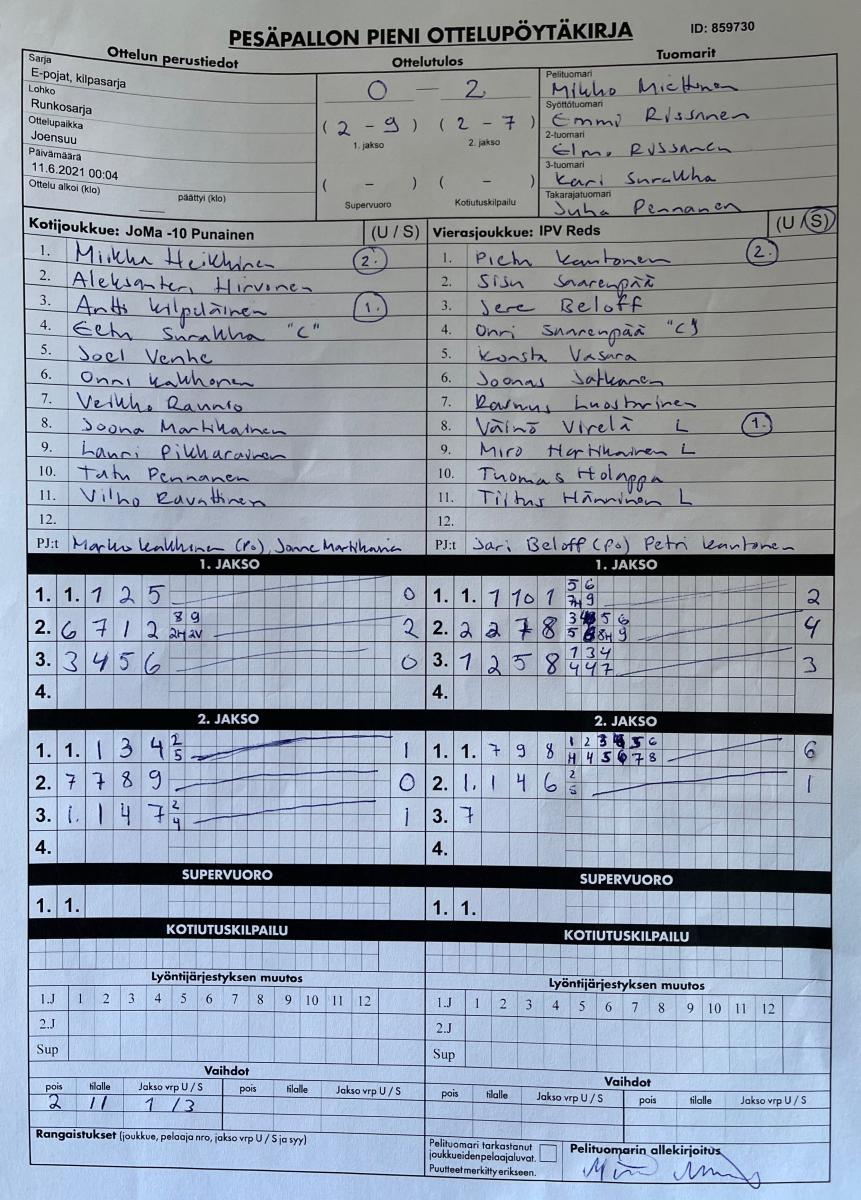 PESÄPALLON PIENI OTTELUPÖYTÄKIRJA
ID: 859730
Ottelun perustiedot
Sarja
E-pojat, kilpasarja
Lohko
Runkosarja
Ottelupaikka
Joensuu
Päivämäärä
11.6.2021 00:04
Ottelu alkoi (klo) päättyi (klo)
Ottelutulos
0 — 2
(2 - 9) (2 - 7)
1. jakso 2. jakso
( - ) ( - )
Supervuoro Kotiutuskilpailu
Tuomarit
Pelituomari
Mikko Miettinen
Syöttötuomari
Emmi Rissanen
2-tuomari
Elmo Rissanen
3-tuomari
Kari Surakka
Takarajatuomari
Juha Pennanen
Kotijoukkue: JoMa -10 Punainen (U / S)
1. Miikka Heikkinen 2.
2. Aleksanteri Hirvonen
3. Antti Kilpeläinen 1.
4. Eetu Surakka "C"
5. Joel Venhe
6. Onni Kakkonen
7. Veikko Raunio
8. Joona Martikainen
9. Lauri Pikkarainen
10. Tatu Pennanen
11. Vilho Ravattinen
12.
PJ:t Marko Kakkonen (PO), Janne Martikainen
Vierasjoukkue: IPV Reds (U / S)
1. Pietu Kantonen 2.
2. Sisu Saarenpää
3. Jere Beloff
4. Onni Saarenpää "C"
5. Konsta Vasara
6. Joonas Jatkanen
7. Rasmus Luostarinen
8. Väinö Virelä L 1.
9. Miro Hartikainen L
10. Tuomas Holappa
11. Tiitus Hänninen L
12.
PJ:t Jari Beloff (PO) Petri Kantonen
1. JAKSO
1. 1. 1 2 5 0
2. 6 7 1 2 8 9 2H 2V 2
3. 3 4 5 6 0
4.
1. JAKSO
1. 1. 1 10 1 5 6 7H 9 2
2. 2 2 7 8 4
3. 1 2 5 8 1 3 4 4 4 7 3
4.
2. JAKSO
1. 1. 1 3 4 2 5 1
2. 7 7 8 9 0
3. 1. 1 4 7 2 4 1
4.
2. JAKSO
1. 1. 7 9 8 1 2 3 4 5 6 H 4 5 6 7 8 6
2. 1. 1 4 6 2 5 1
3. 7
4.
SUPERVUORO
1. 1.
SUPERVUORO
1. 1.
KOTIUTUSKILPAILU
KOTIUTUSKILPAILU
Lyöntijärjestyksen muutos
1.J 1 2 3 4 5 6 7 8 9 10 11 12
2.J
Sup
Lyöntijärjestyksen muutos
1.J 1 2 3 4 5 6 7 8 9 10 11 12
2.J
Sup
Vaihdot
pois tilalle Jakso vrp U / S pois tilalle Jakso vrp U / S
2 11 1 /3
Vaihdot
pois tilalle Jakso vrp U / S pois tilalle Jakso vrp U / S
Rangaistukset (joukkue, pelaaja nro, jakso vrp U / S ja syy)
Pelituomari tarkastanut
joukkueiden pelaajaluvat.
Puutteet merkitty erikseen.
Pelituomarin allekirjoitus